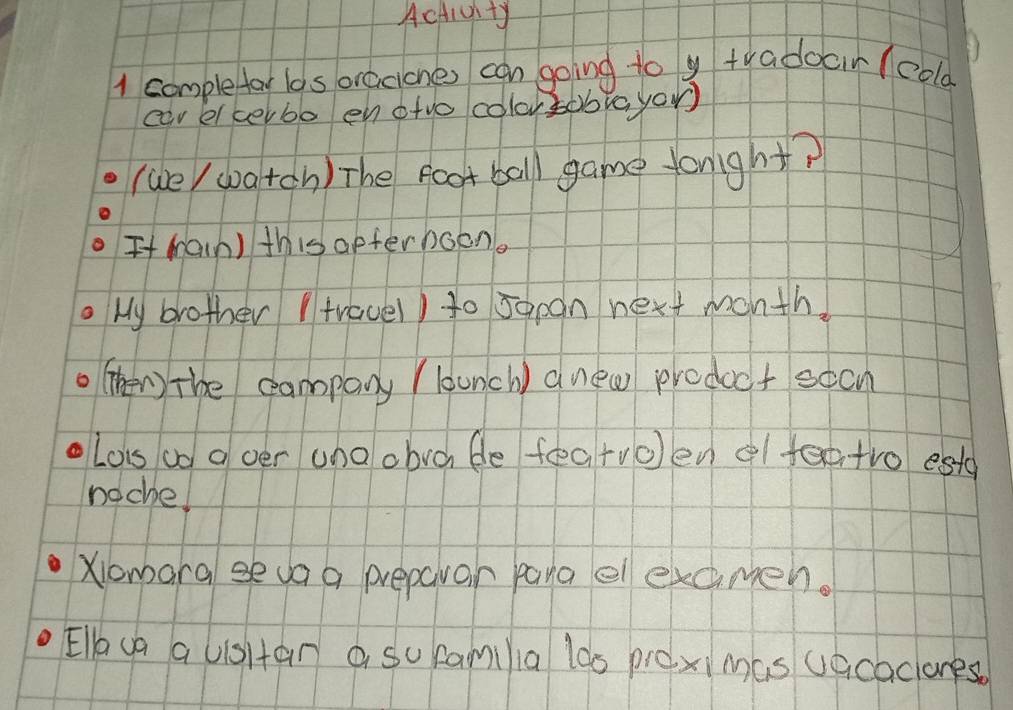 Activity
1 completar las oraciones con going to y traducir (colo
car el verbo en otro color sobrayar)
(we/watch) The foot ball game tonight?
It (rain) this apternoon.
My brother (travel) to Japan next month.
(Then) The company (launch) a new product soon
Lois va a ver una obra (de teatro) en el teatro esta
noche.
Xiomara se va a preparar para el examen.
Ella va a visitar a su familia las proximas vacaciones.